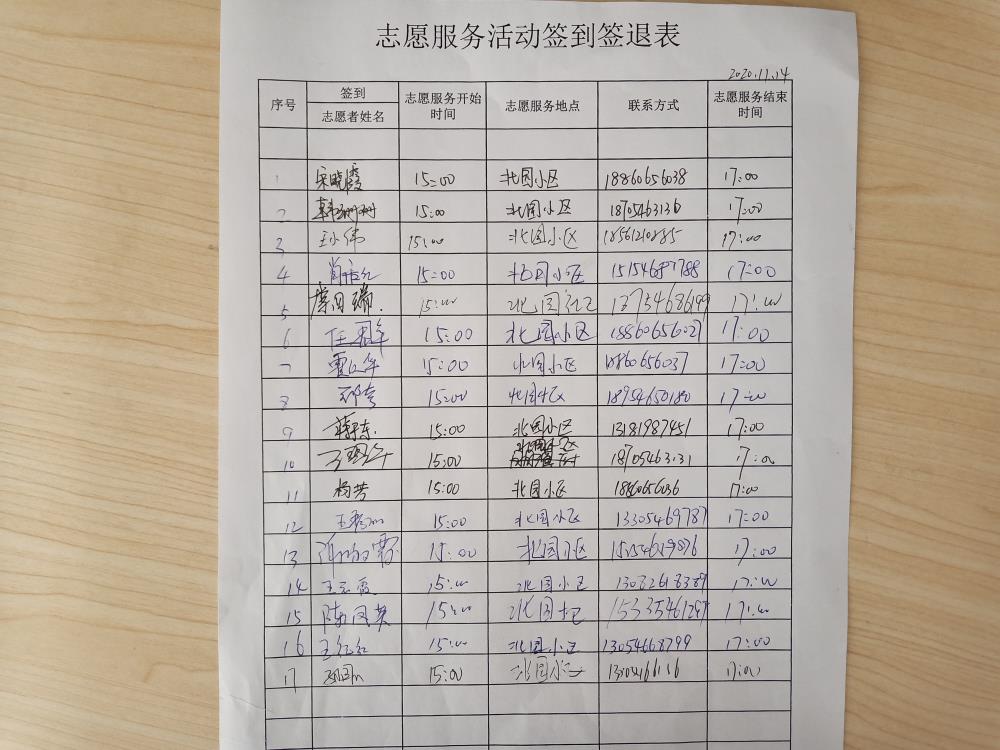 志愿服务活动签到签退表
2020.11.14
序号 签到 志愿服务开始时间 志愿服务地点 联系方式 志愿服务结束时间
志愿者姓名
1 宋晓霞 15:00 北园小区 18860656038 17:00
2 15:00 北园小区 1870546313 17:00
3 王小伟 15:00 北园小区 17:00
4 15:00 北园小区 15154687788 17:00
5 15:00 北园 13754686199 17:00
6 15:00 北园小区 18860656027 17:00
7 15:00 北园小区 18860656037 17:00
8 15:00 北园小区 18954650180 17:00
9 15:00 北园小区 13181987451 17:00
10 15:00 北园小区 18705463131 17:00
11 杨芳 15:00 北园小区 18860656036 17:00
12 15:00 北园小区 13305469787 17:00
13 15:00 北园小区 17:00
14 15:00 北园小区 17:00
15 陈凤英 15:00 北园小区 17:00
16 王红红 15:00 北园小区 13054668799 17:00
17 15:00 北园小区 17:00